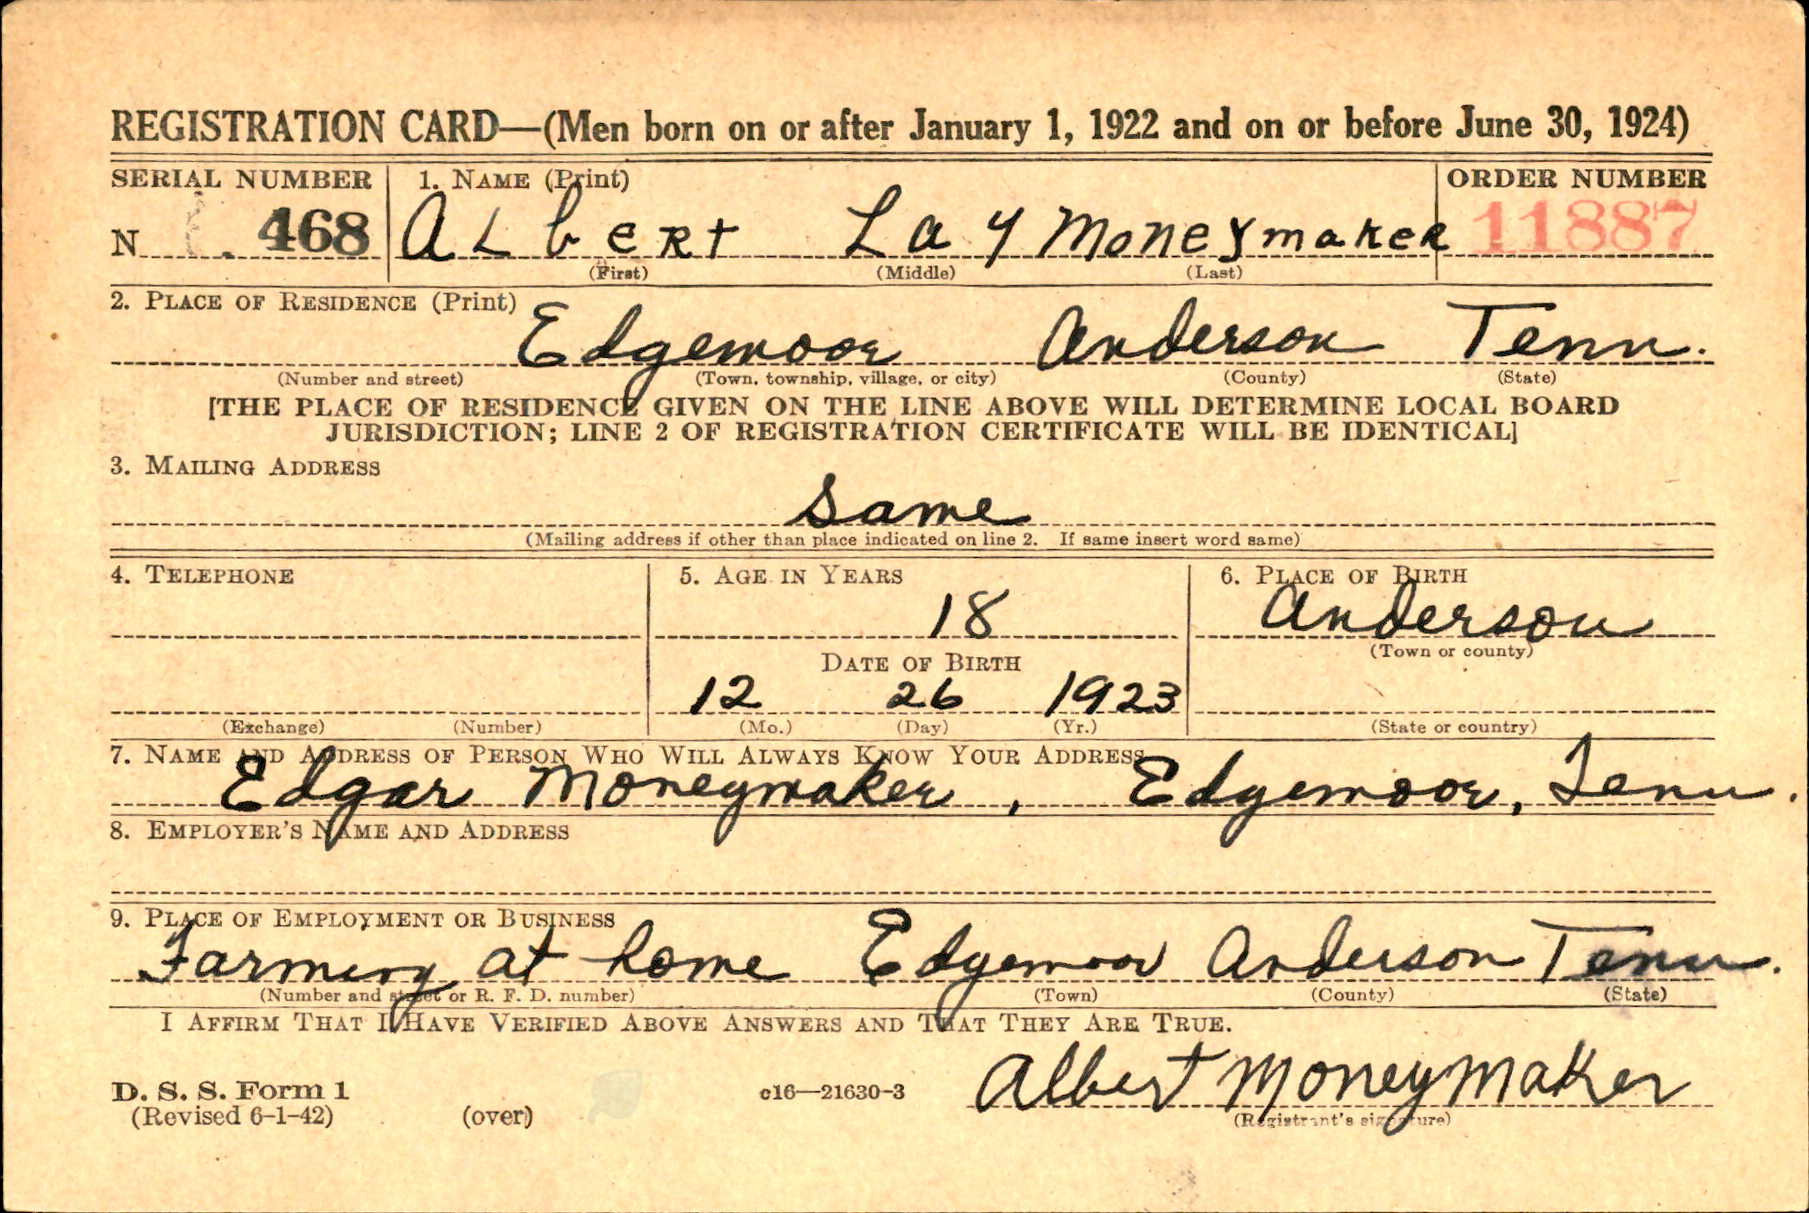 REGISTRATION CARD—(Men born on or after January 1, 1922 and on or before June 30, 1924)
SERIAL NUMBER 1. NAME (Print) ORDER NUMBER
N 468 ALbeRt Lay MoneymakeR 11887
(First) (Middle) (Last)
2. PLACE OF RESIDENCE (Print)
Edgemoor Anderson Tenn.
(Number and street) (Town, township, village, or city) (County) (State)
[THE PLACE OF RESIDENCE GIVEN ON THE LINE ABOVE WILL DETERMINE LOCAL BOARD
JURISDICTION; LINE 2 OF REGISTRATION CERTIFICATE WILL BE IDENTICAL]
3. MAILING ADDRESS
Same
(Mailing address if other than place indicated on line 2. If same insert word same)
4. TELEPHONE 5. AGE IN YEARS 6. PLACE OF BIRTH
18 Anderson
(Town or county)
DATE OF BIRTH
12 26 1923
(Exchange) (Number) (Mo.) (Day) (Yr.) (State or country)
7. NAME AND ADDRESS OF PERSON WHO WILL ALWAYS KNOW YOUR ADDRESS
Edgar Moneymaker, Edgemoor, Tenn.
8. EMPLOYER'S NAME AND ADDRESS
9. PLACE OF EMPLOYMENT OR BUSINESS
Farming at home Edgemoor Anderson Tenn.
(Number and street or R. F. D. number) (Town) (County) (State)
I AFFIRM THAT I HAVE VERIFIED ABOVE ANSWERS AND THAT THEY ARE TRUE.
Albert Moneymaker
D. S. S. Form 1 c16—21630-3 (Registrant's signature)
(Revised 6-1-42) (over)